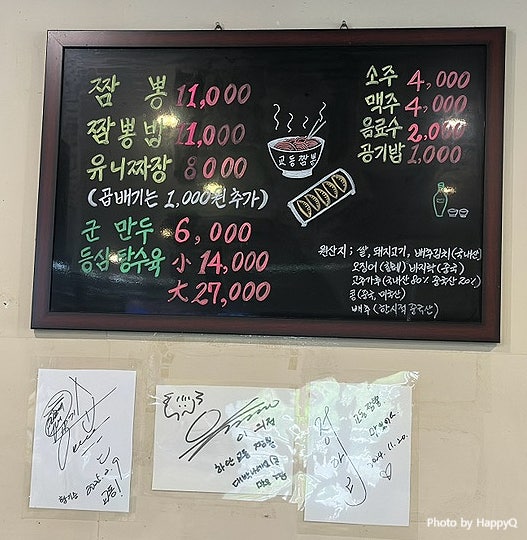 짬 뽕 11,000
짬뽕밥 11,000
유니짜장 8000
(곱배기는 1,000원 추가)
군 만두 6,000
등심 탕수육 小 14,000
大 27,000
소주 4,000
맥주 4,000
음료수 2,000
공기밥 1,000
교동짬뽕
원산지 ; 쌀, 돼지고기, 배추김치(국내산)
오징어 (칠레) 바지락 (중국)
고추가루 (국내산 80% 중국산 20%)
콩 (중국, 미국산)
배추 (한시적 중국산)
2025. 2. 9
교동
이 의정
하안 교동 짬뽕
대박나세요
교동짬뽕
맛있어요
2024. 11. 20.
Photo by HappyQ